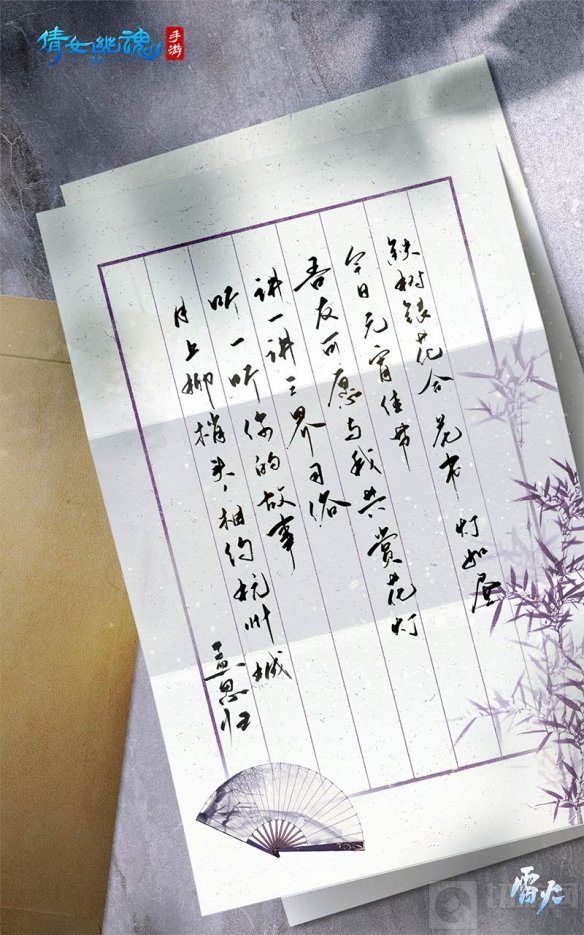 倩女幽魂
手游
铁树银花合 花市灯如昼
今日元宵佳节
吾友可愿与我共赏花灯
讲一讲三界习俗
听一听你的故事
月上柳梢头,相约杭州城
孟思归
雷火